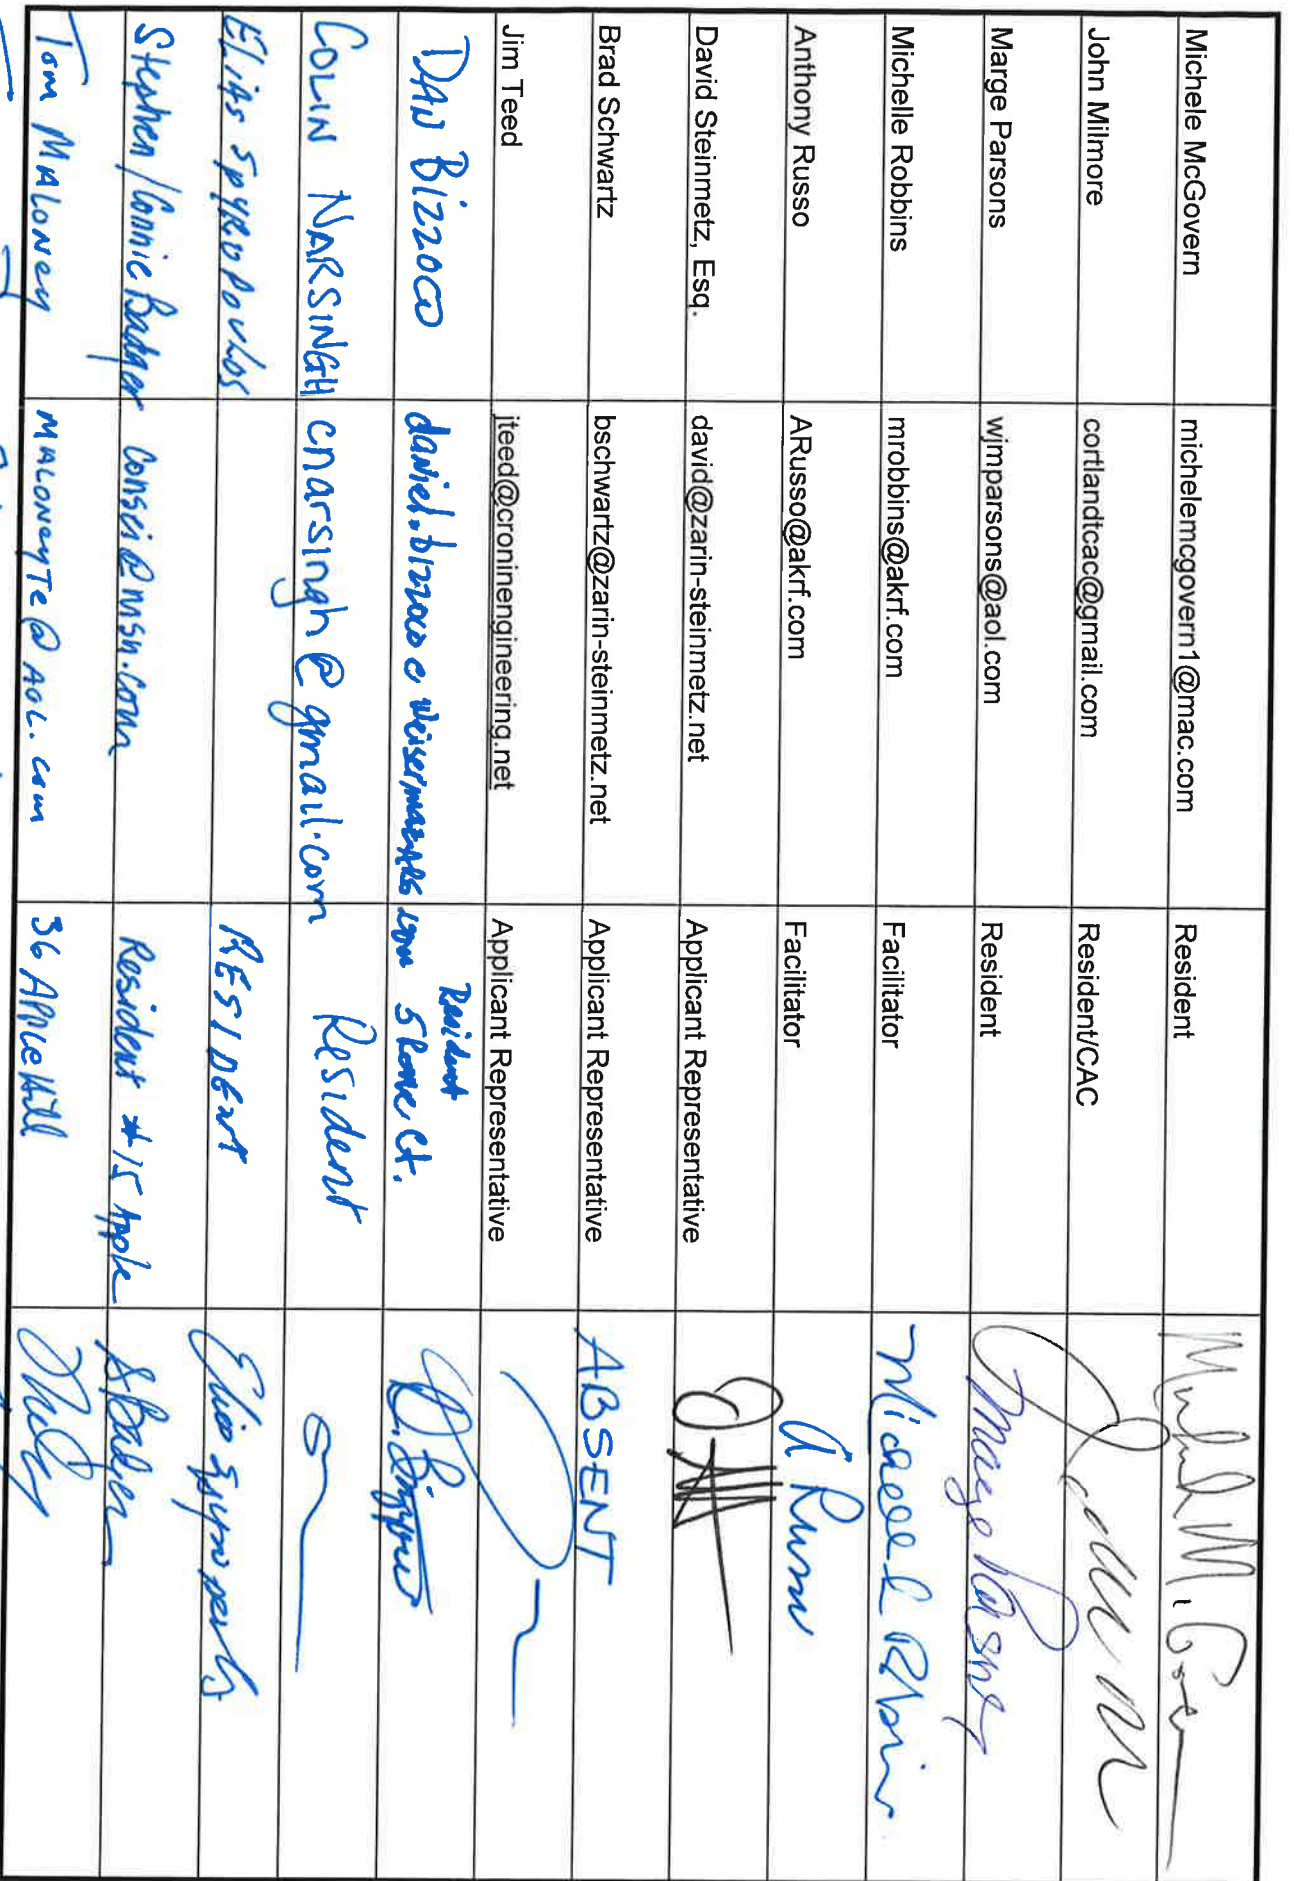 Michele McGovern michelemcgovern1@mac.com Resident
John Milmore cortlandtcac@gmail.com Resident/CAC
Marge Parsons wjmparsons@aol.com Resident Marge Parsons
Michelle Robbins mrobbins@akrf.com Facilitator
Anthony Russo ARusso@akrf.com Facilitator A Russo
David Steinmetz, Esq. david@zarin-steinmetz.net Applicant Representative
Brad Schwartz bschwartz@zarin-steinmetz.net Applicant Representative ABSENT
Jim Teed jteed@cronineengineering.net Applicant Representative
Resident
DAN BIZZOCO daniel.bizzoco@weisermazars.com Ct.
COLIN NARSINGH cnarsingh@gmail.com Resident
ELIAS SPYROPOULOS RESIDENT Elias Spyropoulos
Stephen/Connie Badger consei@msn.com Resident #15 Apple SBadger
Tom MALONEY MALONEYTe@AOL.com 36 APPLE Hill